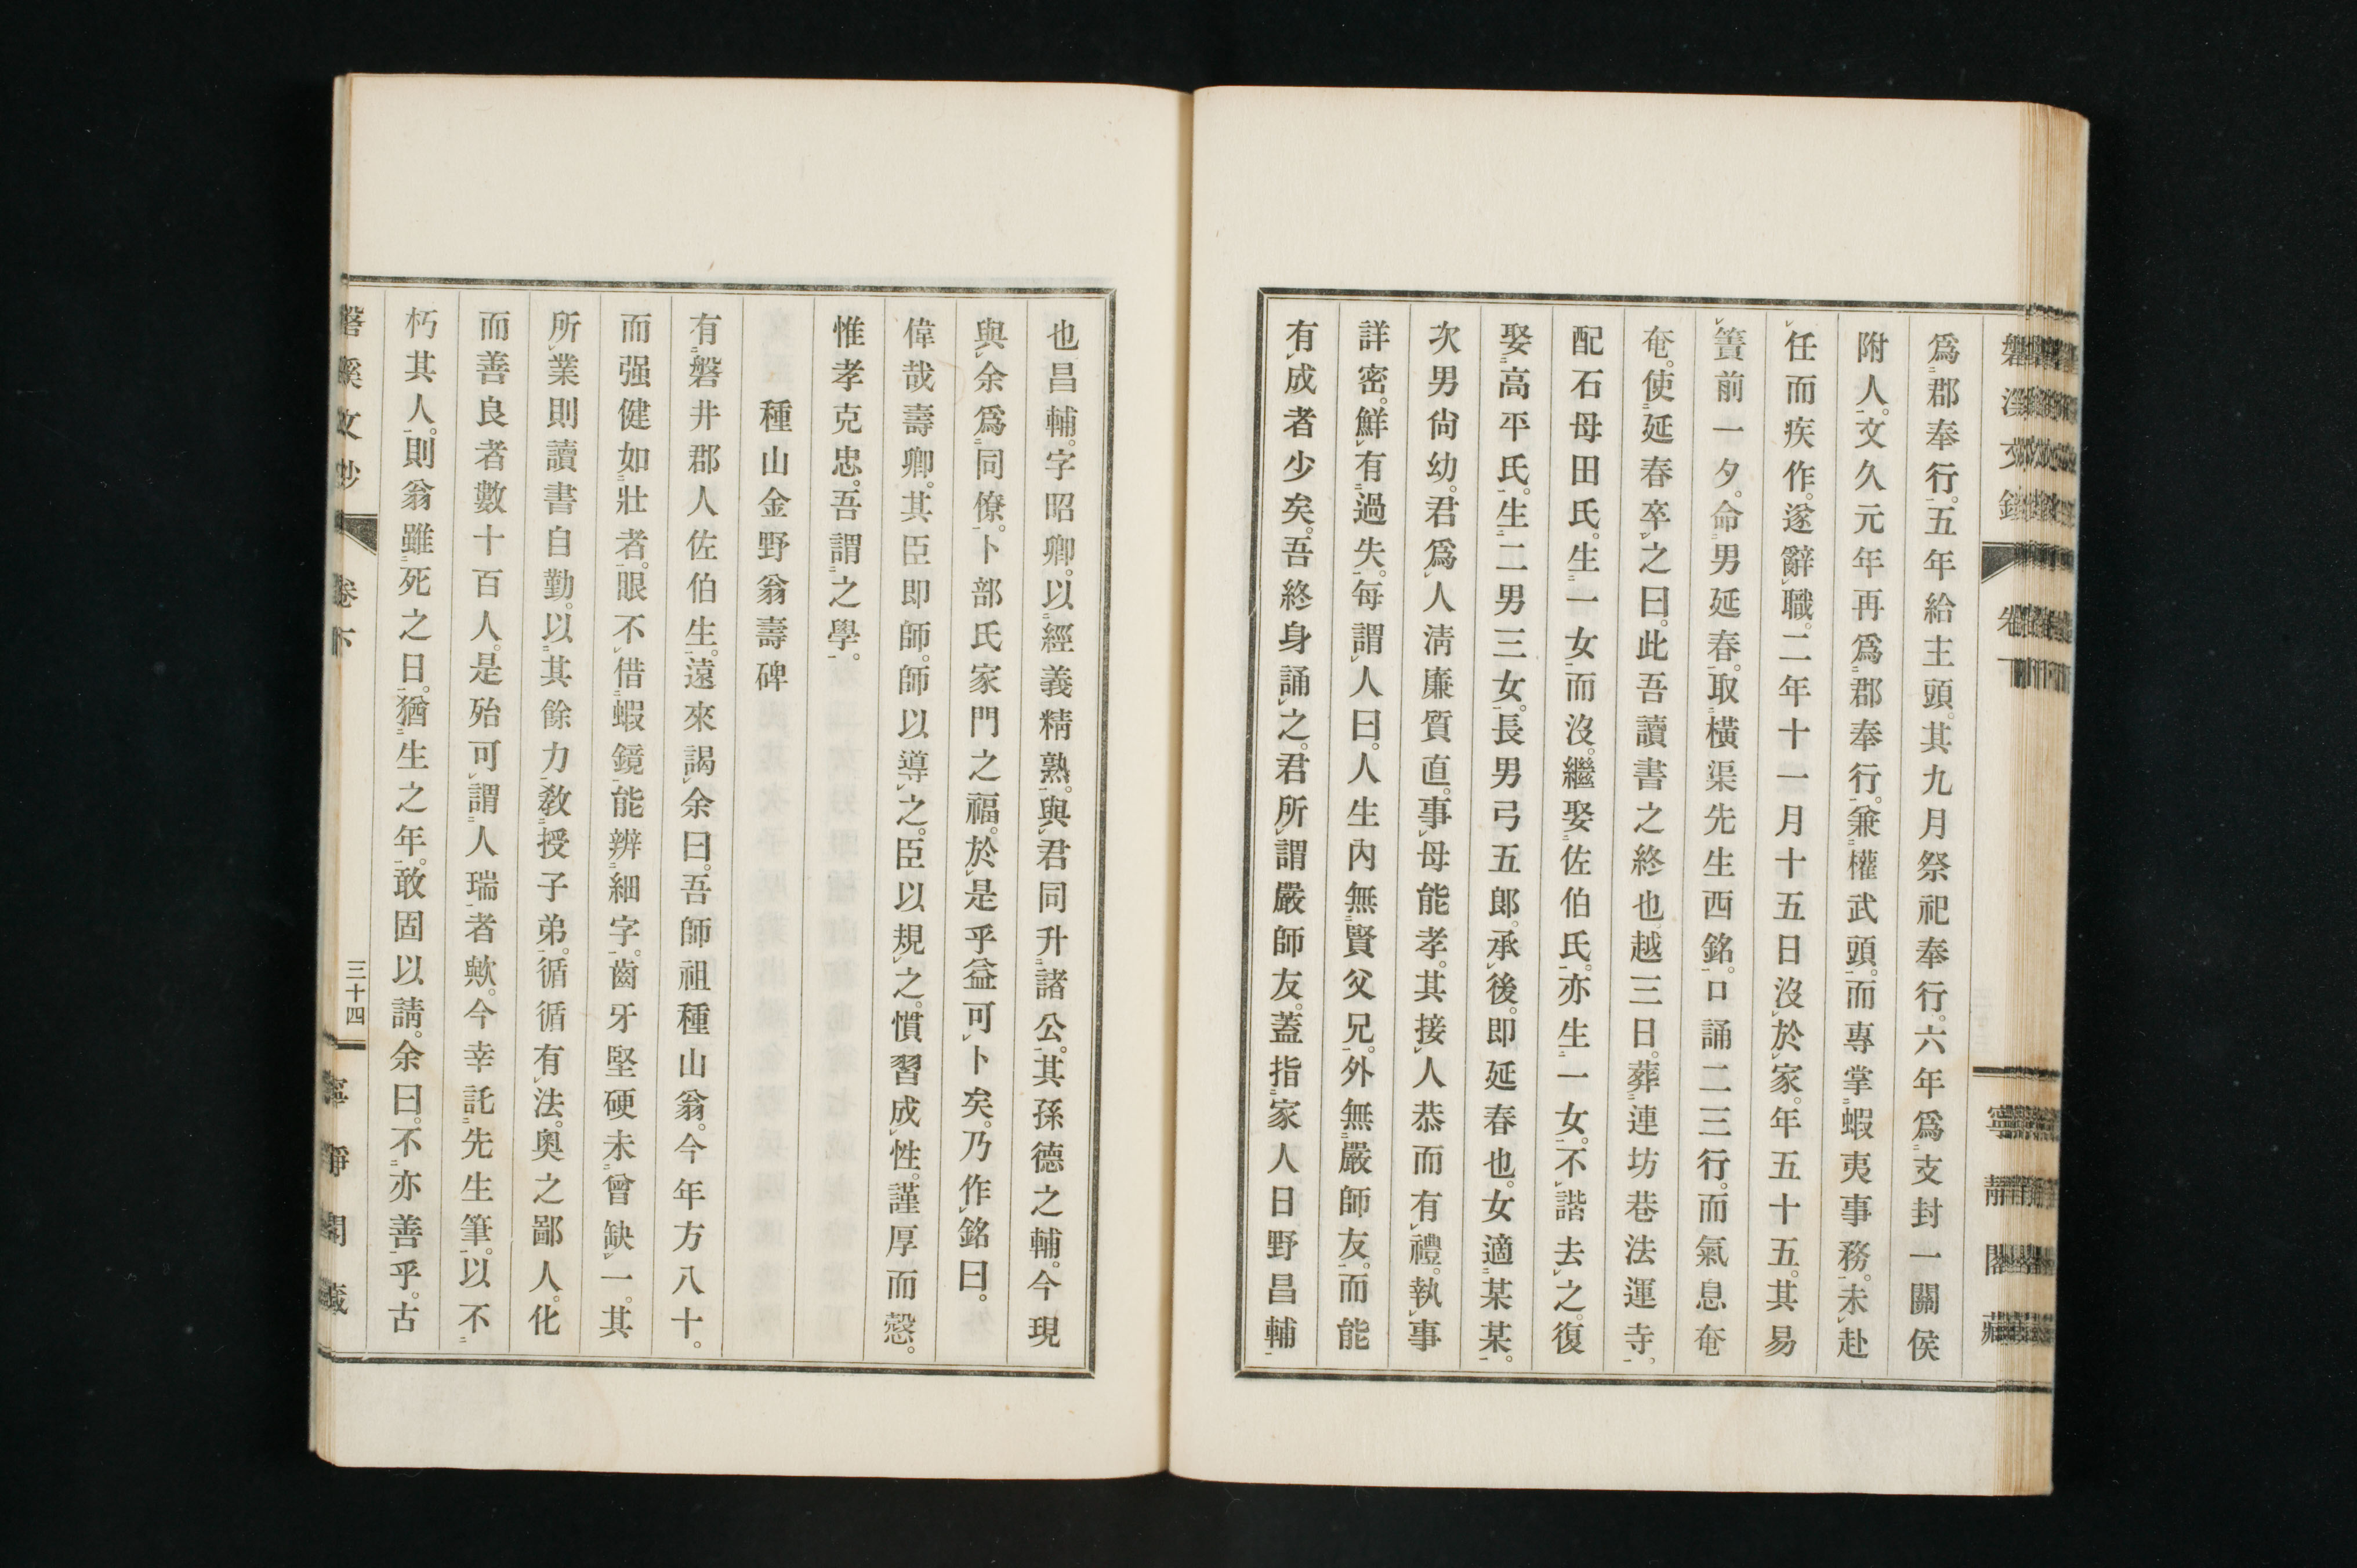 爲郡奉行。五年給主頭。其九月祭祀奉行。六年爲支封一關侯
附人。文久元年再爲郡奉行。兼權武頭。而專掌蝦夷事務。未赴
任而疾作。遂辭職。二年十一月十五日沒於家。年五十五。其易
簀前一夕。命男延春。取橫渠先生西銘。口誦二三行。而氣息奄
奄。使延春卒之曰。此吾讀書之終也。越三日。葬連坊巷法運寺。
配石母田氏。生一女而沒。繼娶佐伯氏。亦生一女。不諧去之。復
娶高平氏。生二男三女。長男弓五郎。承後。即延春也。女適某某。
次男尙幼。君爲人淸廉質直。事母能孝。其接人恭而有禮。執事
詳密。鮮有過失。每謂人曰。人生內無賢父兄。外無嚴師友。而能
有成者少矣。吾終身誦之。君所謂嚴師友。蓋指家人日野昌輔
也昌輔。字昭卿。以經義精熟。與君同升諸公。其孫德之輔。今現
與余爲同僚。卜部氏家門之福。於是乎益可卜矣。乃作銘曰。
偉哉壽卿。其臣即師。師以導之。臣以規之。慣習成性。謹厚而愨。
惟孝克忠。吾謂之學。
種山金野翁壽碑
有磐井郡人佐伯生。遠來謁余曰。吾師祖種山翁。今年方八十。
而强健如壯者。眼不借蝦鏡能辨細字。齒牙堅硬未曾缺一。其
所業則讀書自勤。以其餘力敎授子弟。循循有法。奧之鄙人。化
而善良者數十百人。是殆可謂人瑞者歟。今幸託先生筆。以不
朽其人。則翁雖死之日。猶生之年。敢固以請。余曰。不亦善乎。古
磐溪文鈔 卷下 三十四 寧靜閣藏